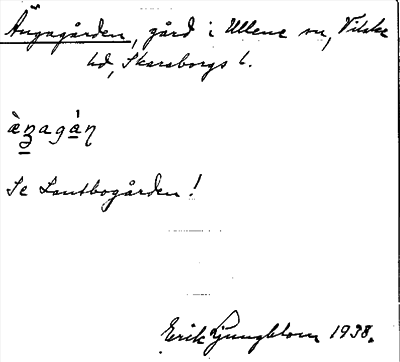 Ängagården, gård i Ullene sn, Vilske
hd, Skaraborgs l.
Se Lantbogården!
Erik Ljungblom 1938.